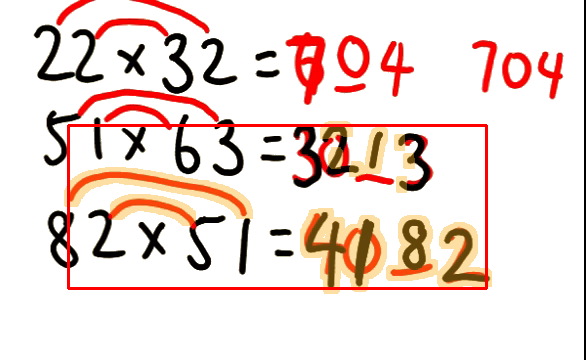 22×32=704 704
51×63=3213
82×51=4182